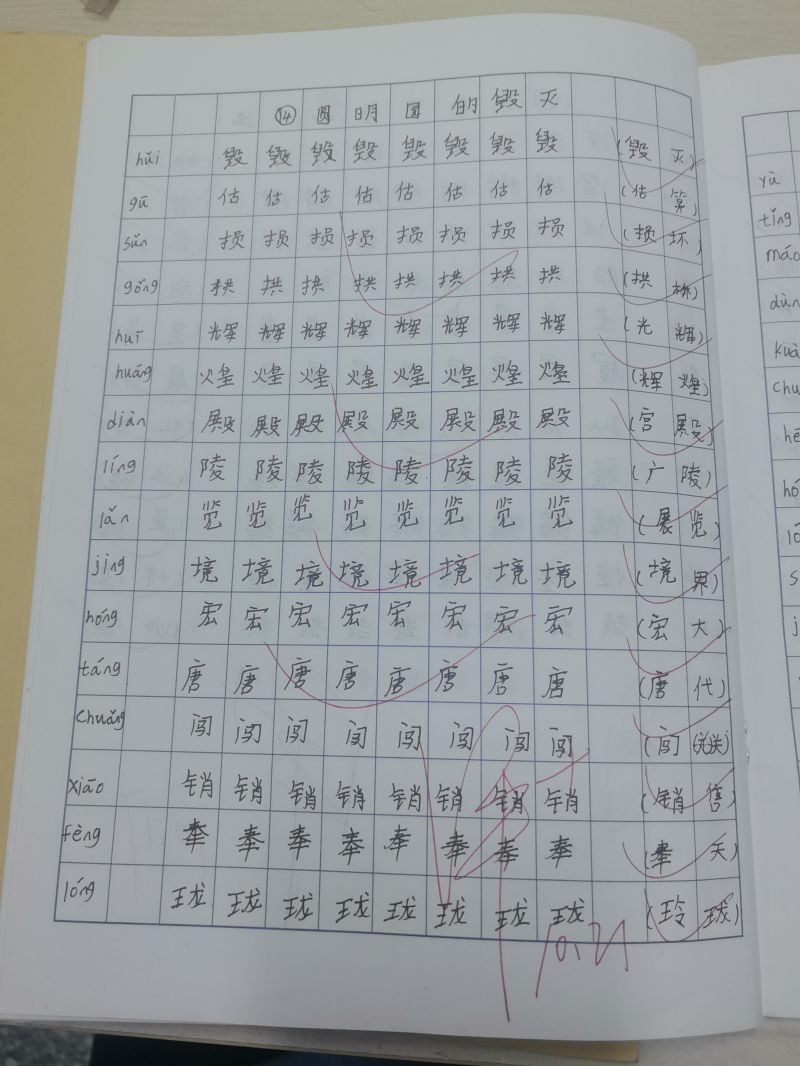 ⑭ 圆 明 园 的 毁 灭
huǐ 毁 毁 毁 毁 毁 毁 毁 毁 (毁 灭)
gū 估 估 估 估 估 估 估 估 (估 算)
sǔn 损 损 损 损 损 损 损 损 (损 坏)
gǒng 拱 拱 拱 拱 拱 拱 拱 拱 (拱 桥)
huī 辉 辉 辉 辉 辉 辉 辉 辉 (光 辉)
huáng 煌 煌 煌 煌 煌 煌 煌 煌 (辉 煌)
diàn 殿 殿 殿 殿 殿 殿 殿 殿 (宫 殿)
líng 陵 陵 陵 陵 陵 陵 陵 陵 (广 陵)
lǎn 览 览 览 览 览 览 览 览 (展 览)
jìng 境 境 境 境 境 境 境 境 (境 界)
hóng 宏 宏 宏 宏 宏 宏 宏 宏 (宏 大)
táng 唐 唐 唐 唐 唐 唐 唐 唐 (唐 代)
chuǎng 闯 闯 闯 闯 闯 闯 闯 闯 (闯
xiāo 销 销 销 销 销 销 销 销 (销 售)
fèng 奉 奉 奉 奉 奉 奉 奉 奉 (奉 天)
lóng 珑 珑 珑 珑 珑 珑 珑 珑 (玲 珑)
10.21
yù
tǐng
máo